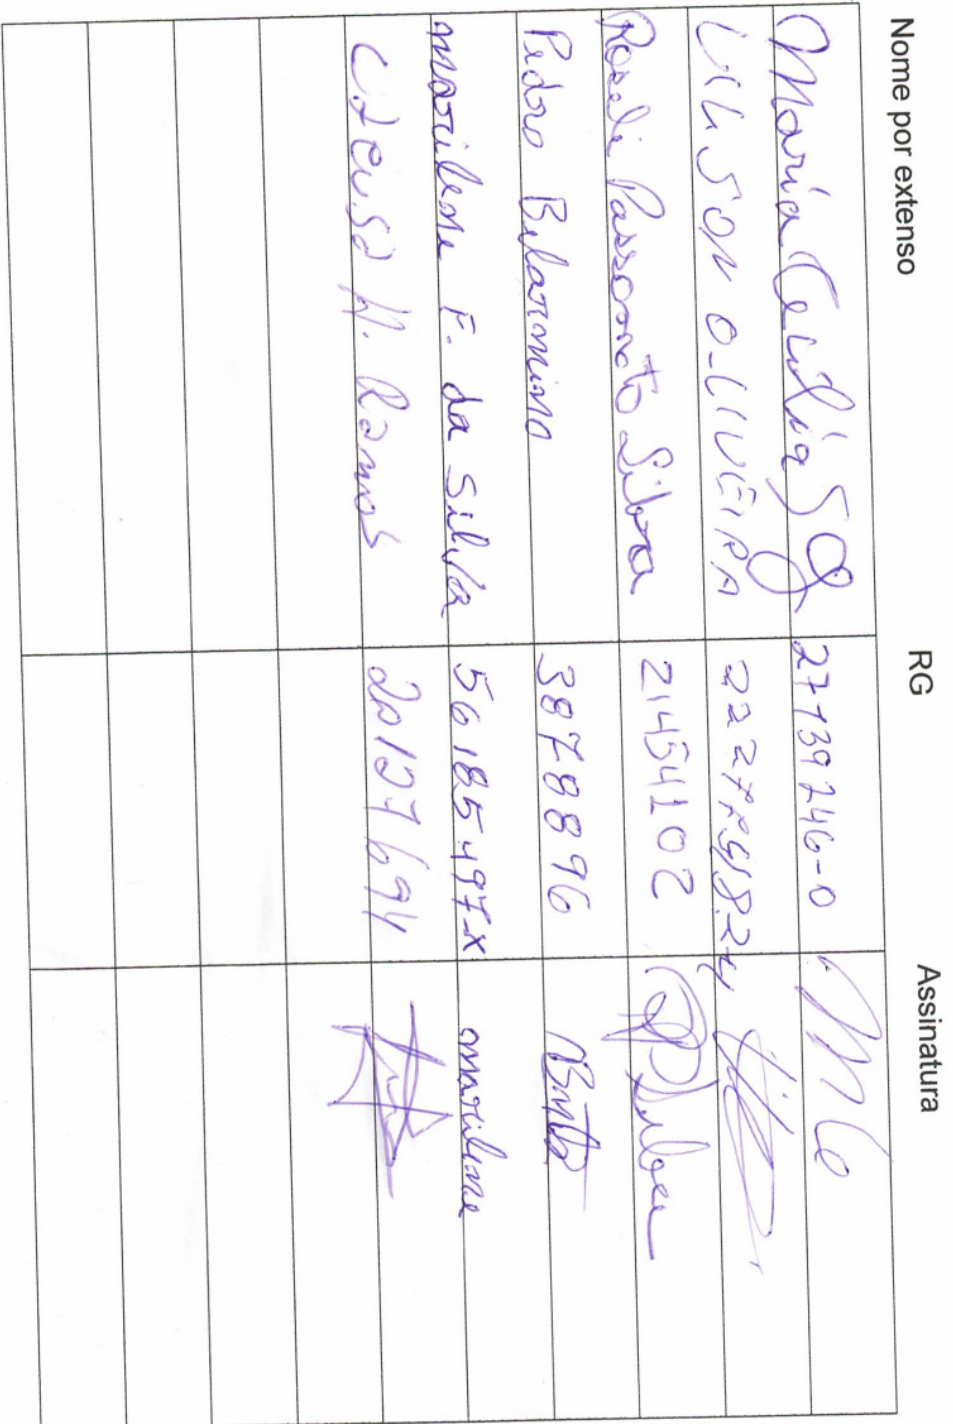 Nome por extenso RG Assinatura
Maria Cecilia 27739246-0 MC
OLIVEIRA
Roseli Passonato Silva 214541102 Silva
Pedro Belarmino 38788896
marilene F. da Silva 56185497-x marilene
Cleusa Ramos 20127694